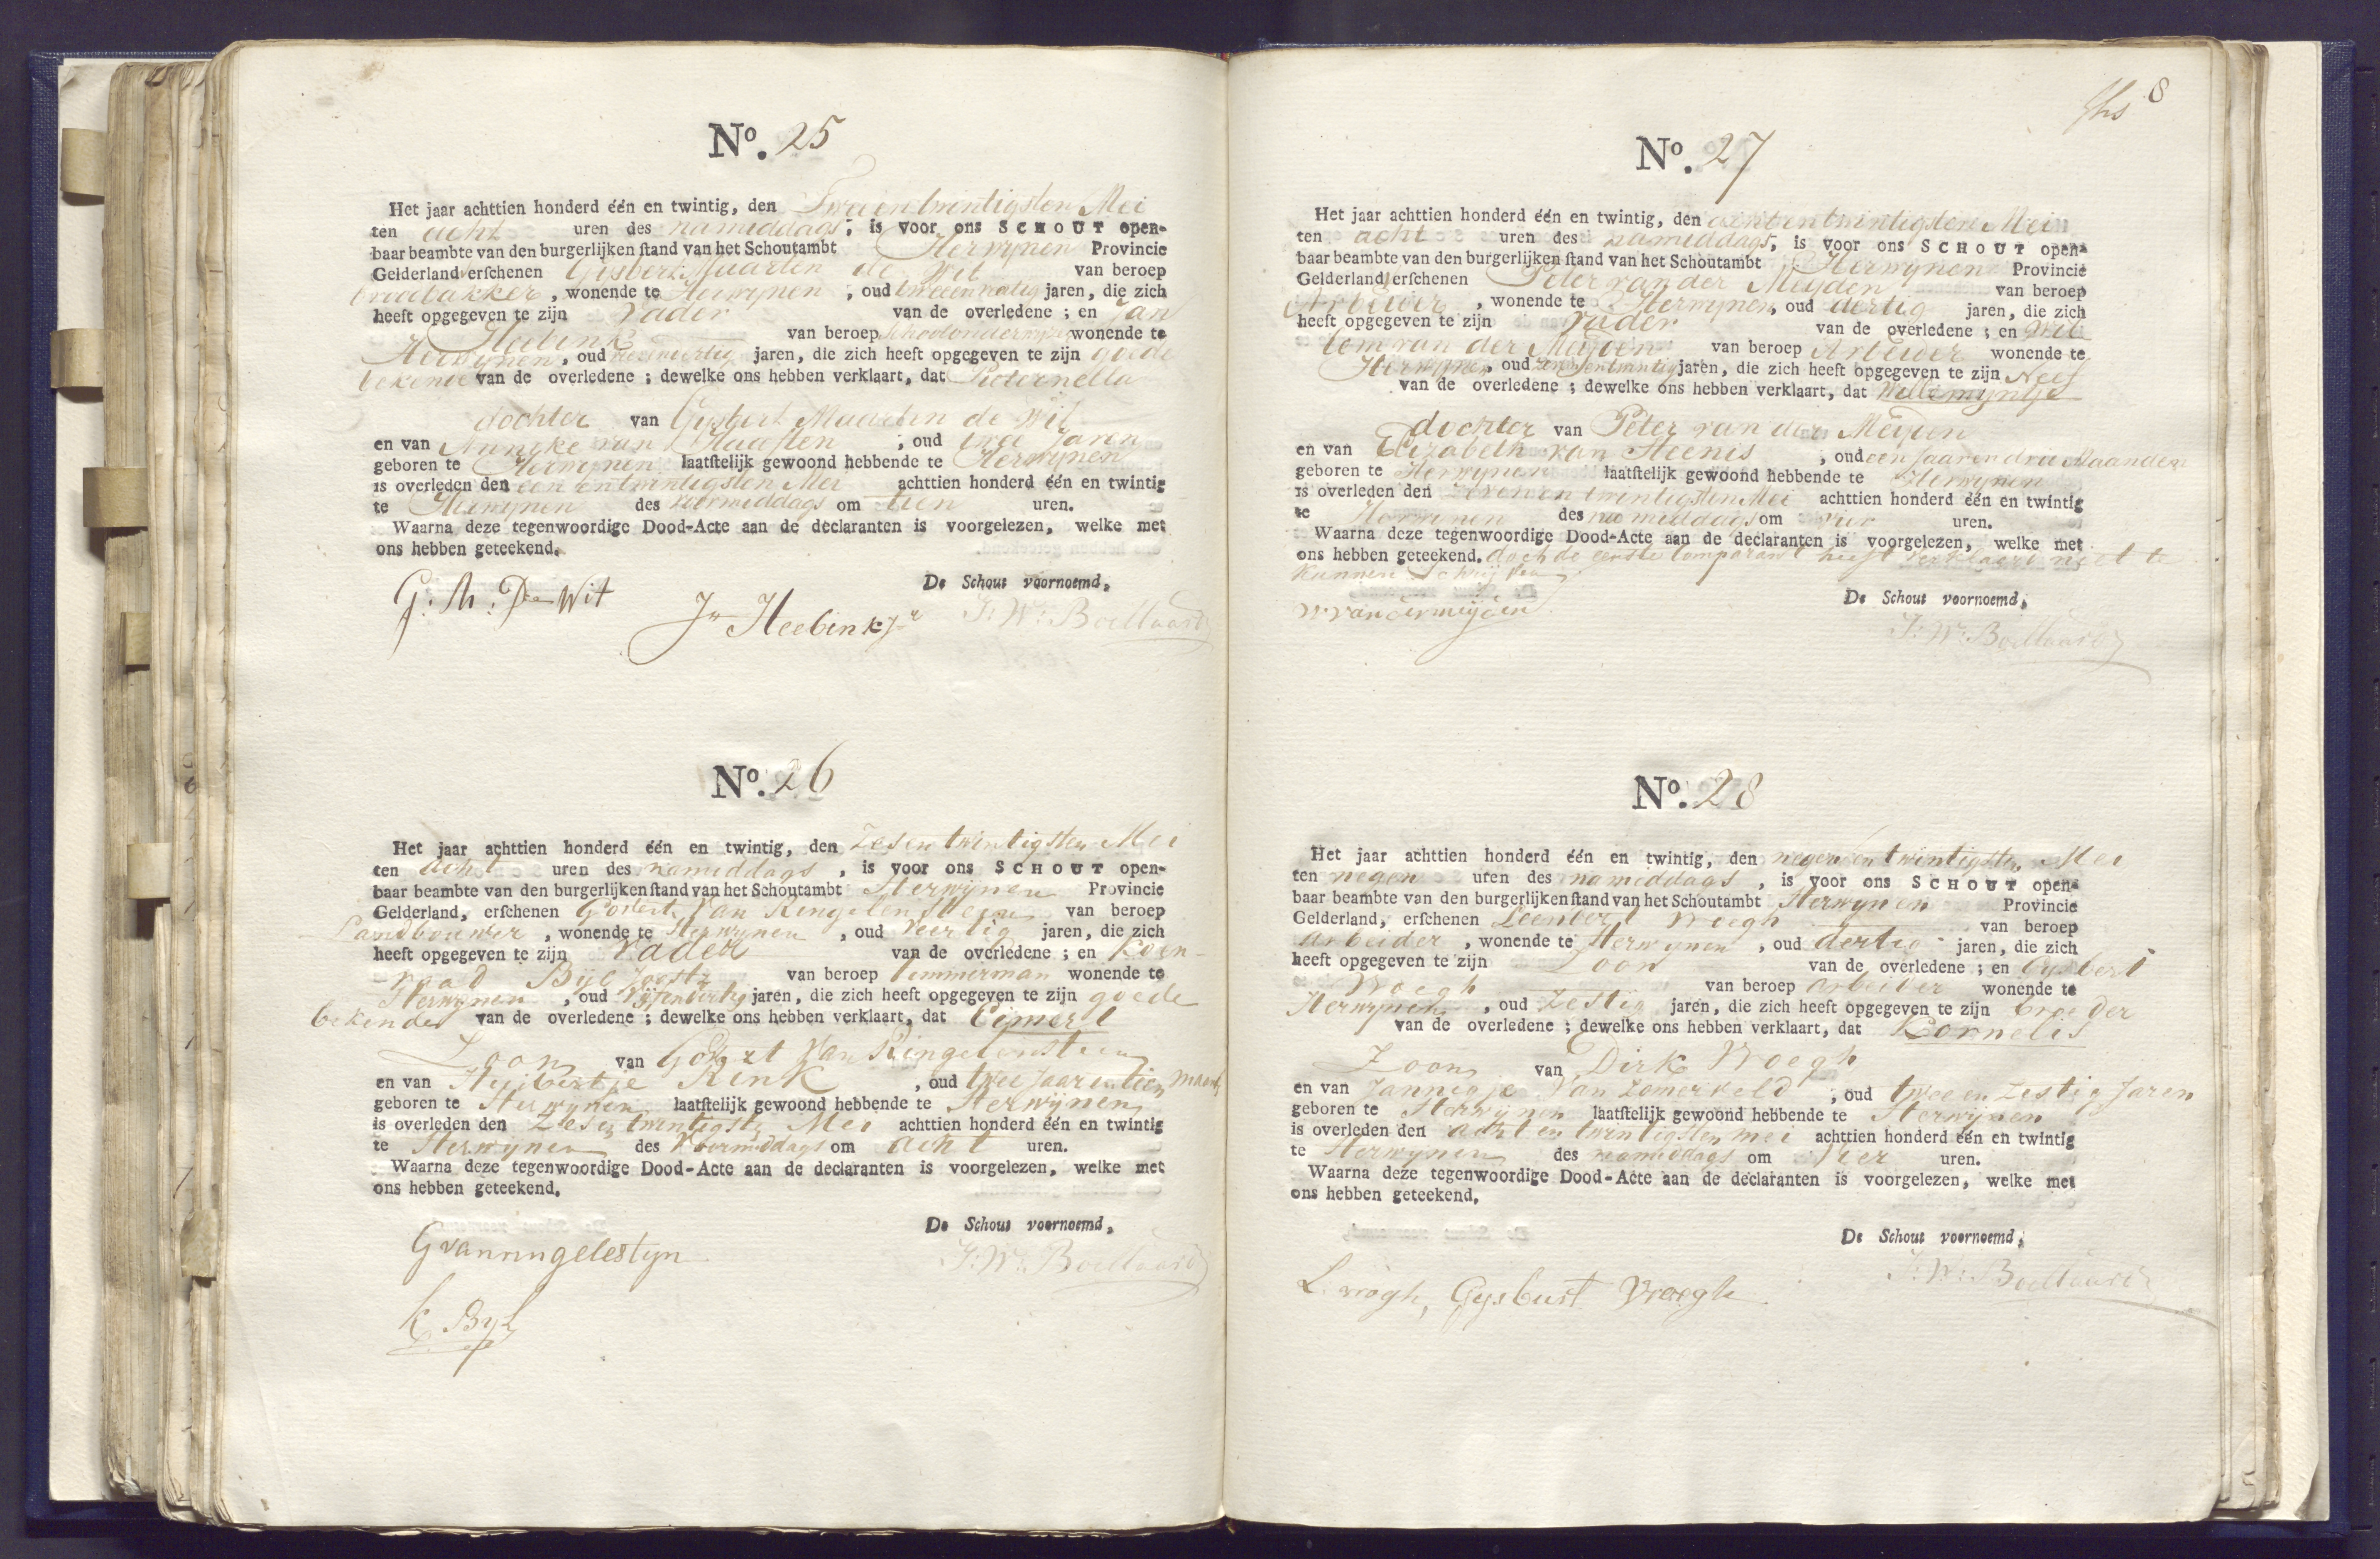 No. 25
Het jaar achttien honderd één en twintig, den Twee en twintigsten Mei
ten acht uren des namiddags, is voor ons SCHOUT open-
baar beambte van den burgerlijken stand van het Schoutambt Herwynen Provincie
Gelderland erschenen Gysbert Maarten de Wit van beroep
broodbakker, wonende te Herwynen, oud jaren, die zich
heeft opgegeven te zijn Vader van de overledene; en Jan
Heebink van beroep Schoolonderwyzer wonende te
Herwynen, oud jaren, die zich heeft opgegeven te zijn goede
bekende van de overledene; dewelke ons hebben verklaart, dat Pieternella
dochter van Gysbert Maarten de Wit
en van Anneke van Haaften, oud twee Jaren
geboren te Herwynen laatstelijk gewoond hebbende te Herwynen
is overleden den een en twintigsten Mei achttien honderd één en twintig
te Herwynen des voormiddags om tien uren.
Waarna deze tegenwoordige Dood-Acte aan de declaranten is voorgelezen, welke met
ons hebben geteekend.
De Schout voornoemd,
G: M: De Wit
Jn Heebink Jr
J: W: Boellaard
No. 26
Het jaar achttien honderd één en twintig, den Zesen twintigsten Mei
ten acht uren des namiddags, is voor ons SCHOUT open-
baar beambte van den burgerlijken stand van het Schoutambt Herwynen Provincie
Gelderland, erschenen Godert Van Ringelensteen van beroep
Landbouwer, wonende te Herwynen, oud veertig jaren, die zich
heeft opgegeven te zijn Vader van de overledene; en Koen-
raad Byl Joostz van beroep Timmerman wonende te
Herwynen, oud vyfendertig jaren, die zich heeft opgegeven te zijn goede
bekende van de overledene; dewelke ons hebben verklaart, dat Eimert
Zoon van Godert Van Ringelensteen
en van Huibertje Rink, oud twee Jaar en tien maand
geboren te Herwynen laatstelijk gewoond hebbende te Herwynen
is overleden den Zesen twintigste Mei achttien honderd één en twintig
te Herwynen des Voormiddags om acht uren.
Waarna deze tegenwoordige Dood-Acte aan de declaranten is voorgelezen, welke met
ons hebben geteekend.
De Schout voornoemd,
G van ringelestyn
J: W: Boellaard
K Byl
8
No. 27
Het jaar achttien honderd één en twintig, den achtentwintigsten Mei
ten acht uren des namiddags, is voor ons SCHOUT open-
baar beambte van den burgerlijken stand van het Schoutambt Herwynen Provincie
Gelderland erschenen Peter van der Meijden van beroep
Arbeider, wonende te Herwynen, oud dertig jaren, die zich
heeft opgegeven te zijn Vader van de overledene; en Wil
lem van der Meijden van beroep Arbeider wonende te
Herwynen, oud jaren, die zich heeft opgegeven te zijn Neef
van de overledene; dewelke ons hebben verklaart, dat Willemyntje
dochter van Peter van der Meijden
en van Elizabeth van Steenis, oud een Jaar en drie Maanden
geboren te Herwynen laatstelijk gewoond hebbende te Herwynen
is overleden den zeven en twintigsten Mei achttien honderd één en twintig
te Herwynen des namiddags om vier uren.
Waarna deze tegenwoordige Dood-Acte aan de declaranten is voorgelezen, welke met
ons hebben geteekend. doch de eerste Comparant heeft verklaard niet te
kunnen Schryven
De Schout voornoemd,
W: van der meijden
J: W: Boellaard
No. 28
Het jaar achttien honderd één en twintig, den negen en twintigsten Mei
ten negen uren des namiddags, is voor ons SCHOUT open-
baar beambte van den burgerlijken stand van het Schoutambt Herwynen Provincie
Gelderland, erschenen Leendert Vroegh van beroep
arbeider, wonende te Herwynen, oud dertig jaren, die zich
heeft opgegeven te zijn Zoon van de overledene; en Gysbert
Vroegh van beroep arbeider wonende te
Herwynen, oud Zestig jaren, die zich heeft opgegeven te zijn broeder
van de overledene; dewelke ons hebben verklaart, dat Cornelis
Zoon van Dirk Vroegh
en van Jannigje Van Zomerveld, oud twee en Zestig Jaren
geboren te Herwynen laatstelijk gewoond hebbende te Herwynen
is overleden den acht en twintigsten mei achttien honderd één en twintig
te Herwynen des namiddags om Vier uren.
Waarna deze tegenwoordige Dood-Acte aan de declaranten is voorgelezen, welke met
ons hebben geteekend.
De Schout voornoemd,
L. vrogh, Gysbert Vroegh
J: W: Boellaard